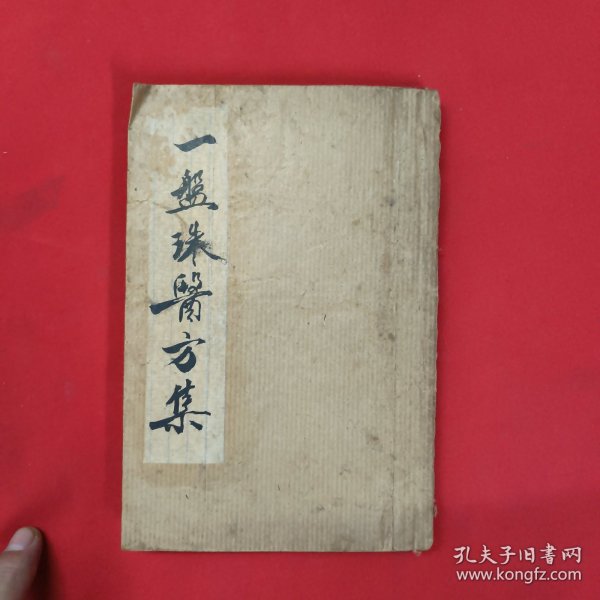 一盤珠醫方集
孔夫子旧书网
www.kongfz.com